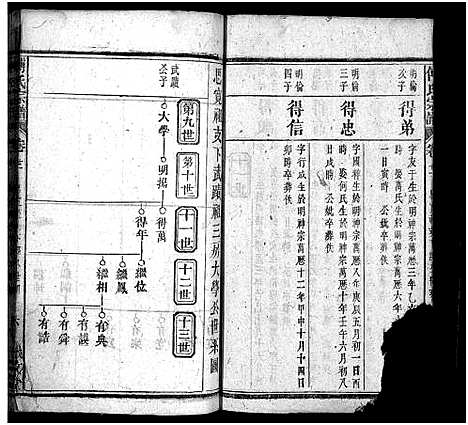 明倫
次子
得弟
字友于生於明神宗萬曆三年乙
時娶萬氏生於明神宗萬曆六年
一日寅時 公妣卒葬佚
明倫
三子
得忠
字國禎生於明神宗萬曆八年五月初一日酉
時娶何氏生於明神宗萬曆十年壬午六月初八
時 公妣卒葬佚
明倫
四子
得信
字行威生於明神宗萬曆十二年甲申十月十四日
卯時卒葬佚
思寬祖支下武蹟祖三房大學公世系圖
第九世
第十世
十一世
十二世
十三世
武蹟
公子
大學
明揚
得萬
得年
繼位
繼鳳
繼相
有典
有謨
有舜
有誥